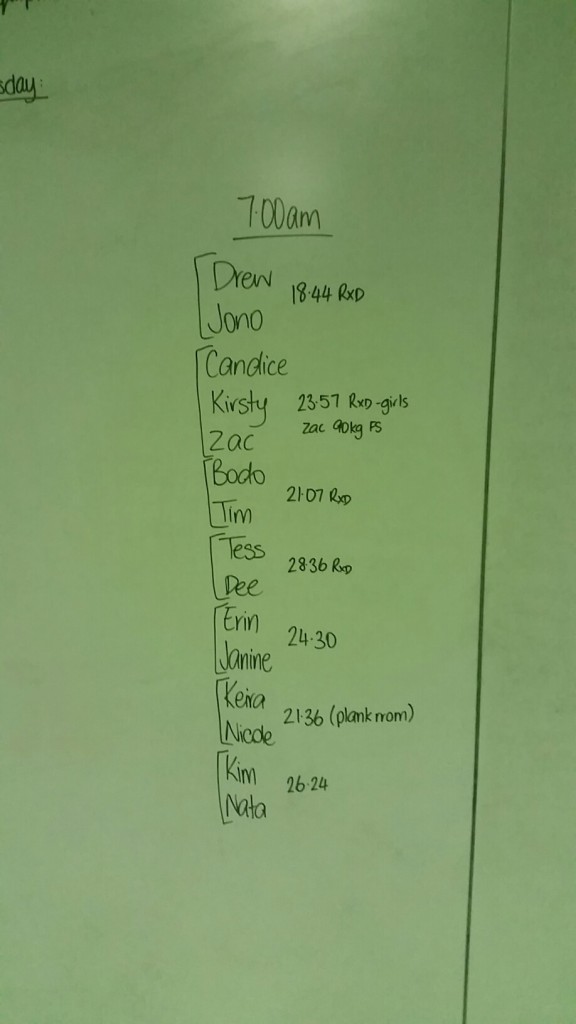 sday:
7:00am
Drew
18.44 RxD
Jono
Candice
Kirsty
23.57 RxD-girls
Zac 90kg FS
Zac
Bodo
21.07 RxD
Tim
Tess
28.36 RxD
Dee
Erin
24.30
Janine
Keira
21.36 (plank mom)
Nicole
Kim
26.24
Nata